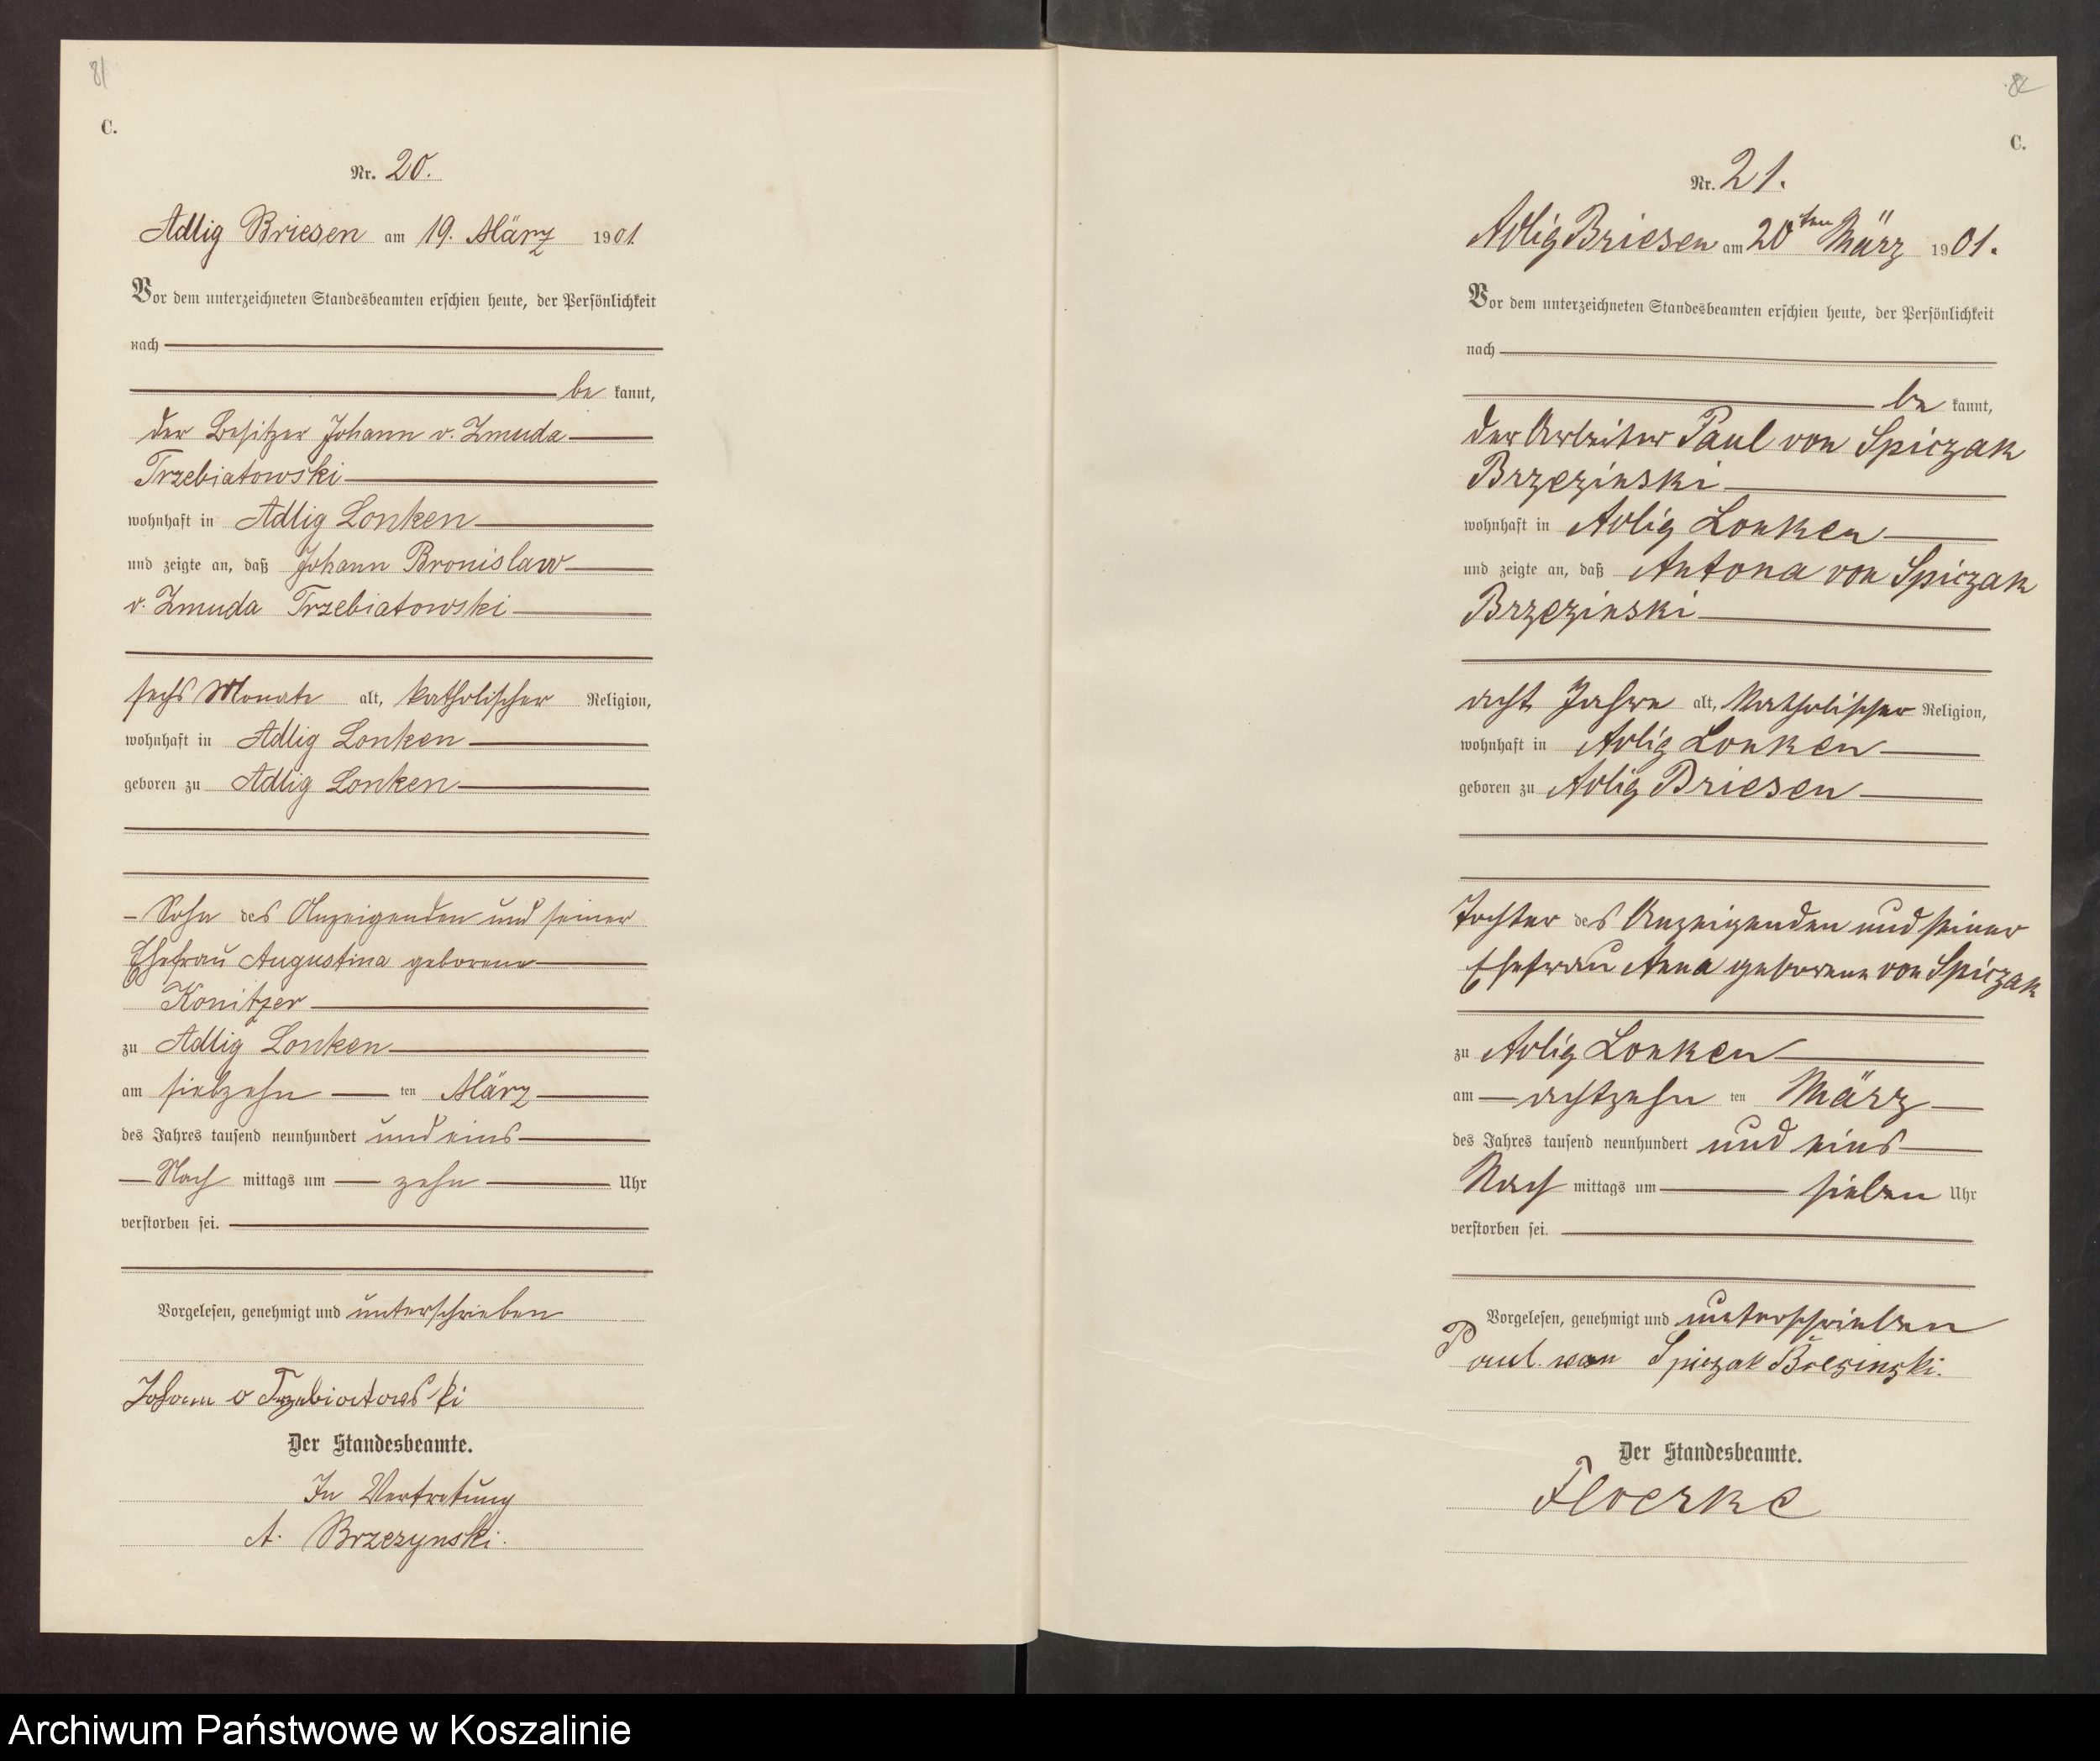 81
C.
Nr. 20.
Adlig Briesen am 19. März 1901.
Vor dem unterzeichneten Standesbeamten erschien heute, der Persönlichkeit
nach
be kannt,
der Besitzer Johann v. Zmuda
Trzebiatowski
wohnhaft in Adlig Lonken
und zeigte an, daß Johann Bronislaw
v. Zmuda Trzebiatowski
sechs Monate alt, katholischer Religion,
wohnhaft in Adlig Lonken
geboren zu Adlig Lonken
Sohn des Anzeigenden und seiner
Ehefrau Augustina geborene
Konitzer
zu Adlig Lonken
am siebzehn ten März
des Jahres tausend neunhundert und eins
Nach mittags um zehn Uhr
verstorben sei.
Vorgelesen, genehmigt und unterschrieben
Johann v Trzebiatowski
Der Standesbeamte.
In Vertretung
A. Brzezynski.
82
C.
Nr. 21.
Adlig Briesen am 20ten März 1901.
Vor dem unterzeichneten Standesbeamten erschien heute, der Persönlichkeit
nach
be kannt,
der Arbeiter Paul von Spiczak
Brzezinski
wohnhaft in Adlig Lonken
und zeigte an, daß Antona von Spiczak
Brzezinski
acht Jahre alt, katholischer Religion,
wohnhaft in Adlig Lonken
geboren zu Adlig Briesen
Tochter des Anzeigenden und seiner
Ehefrau Anna geborene von Spiczak
zu Adlig Lonken
am achtzehn ten März
des Jahres tausend neunhundert und eins
Nach mittags um sieben Uhr
verstorben sei.
Vorgelesen, genehmigt und unterschrieben
Paul von Spiczak Bresinski.
Der Standesbeamte.
Floerke
Archiwum Państwowe w Koszalinie